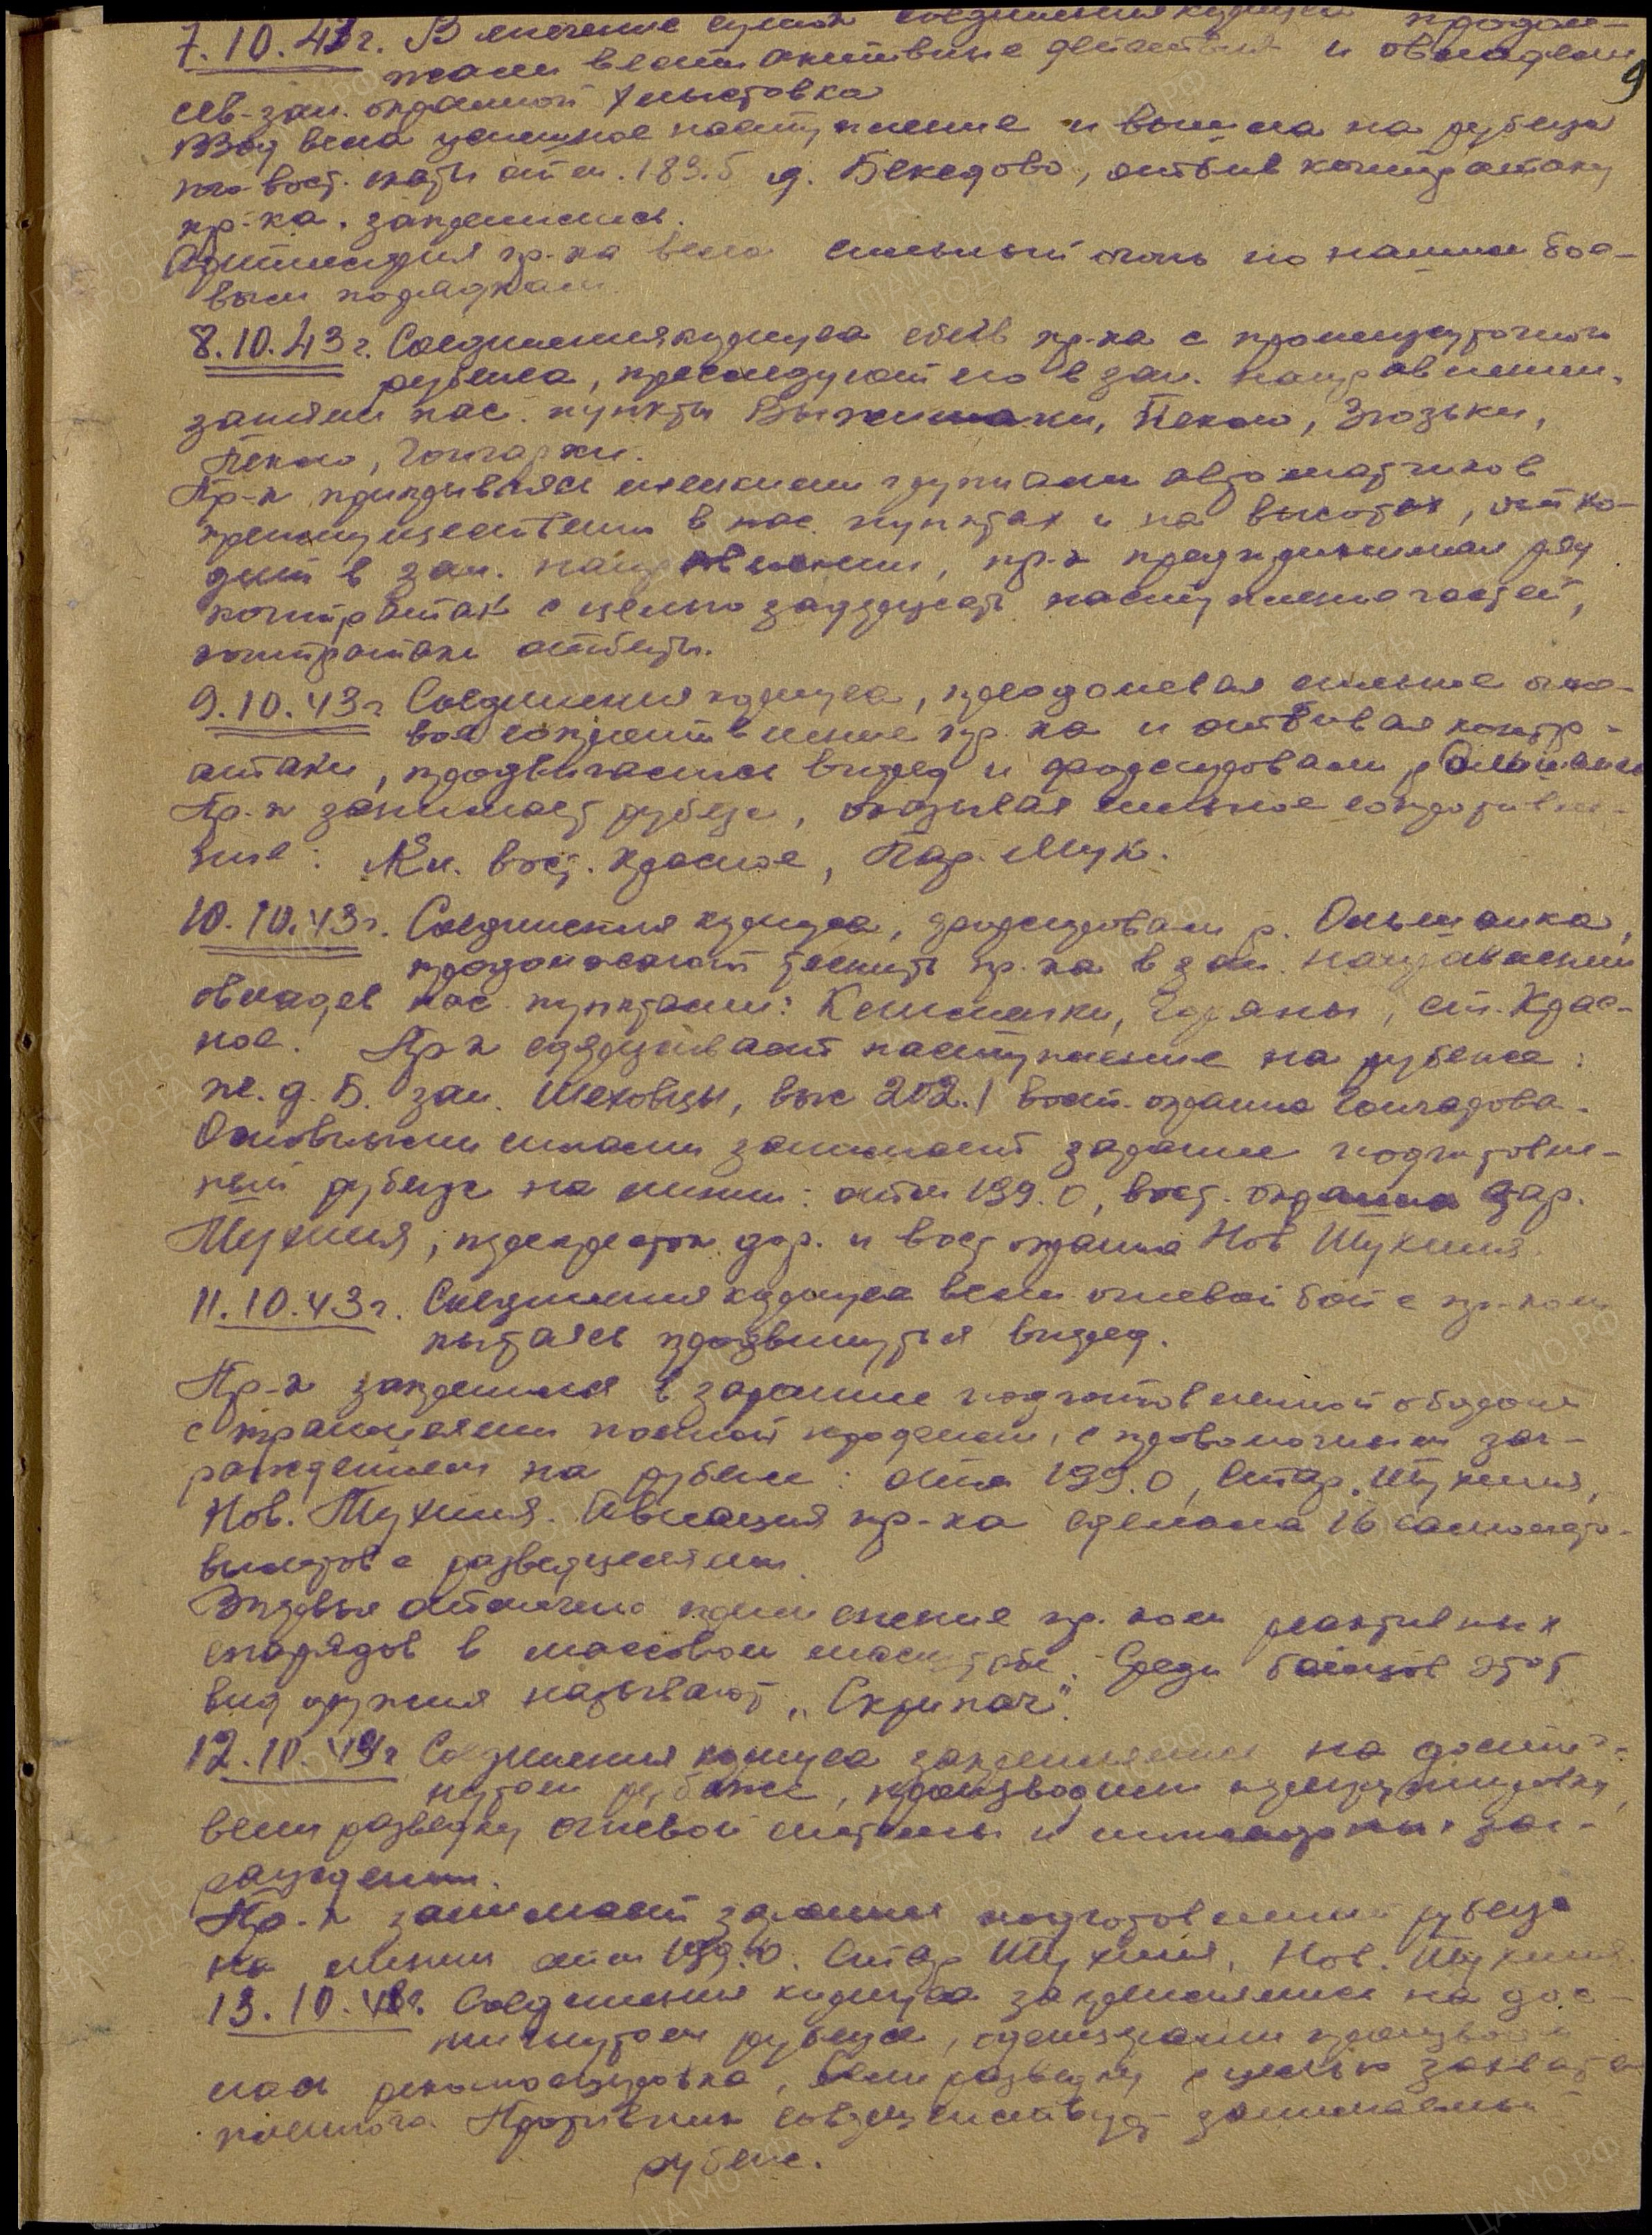 7.10.43г. В течение суток соединения корпуса продол-
жали вести активные действия и овладели
9
сев-зап. окраиной Хлыстовка
вела успешное наступление и вышла на рубеж
вост. скаты отм. 189.5 д. Бекедово, отбив контратаку
пр-ка, закрепились.
Артиллерия пр-ка вела сильный огонь по нашим бое-
вым порядкам.
8.10.43г. Соединения корпуса сбив пр-ка с промежуточного
рубежа, преследуют его в зап. направлении,
заняли нас. пункты Пекло,
Пекло, Гончарки.
Пр-к прикрываясь мелкими группами автоматчиков
преимущественно в нас. пунктах и на высотах, отхо-
дит в зап. направлении, пр-к предпринимал ряд
контратак с целью задержать наступление частей,
контратаки отбиты.
9.10.43г Соединения корпуса, преодолевая сильное огне-
вое сопротивление пр-ка и отбивая контр-
атаки, продвигались вперед и форсировали р. Ольшанка
Пр-к занимает рубеж, оказывая сильное сопротивле-
ние: вост. Красное,
10.10.43г. Соединения корпуса, форсировали р. Ольшанка,
продолжают теснить пр-ка в зап. направлении
овладев нас. пунктами: Горяны, ст. Крас-
ное. Пр-к сдерживает наступление на рубеже:
ж.д.б. зап. Шеховцы, выс 202.1 вост. окраина Гончарова.
Основными силами занимает заранее подготовле-
ный рубеж на линии: отм 199.0, вост. окраина
Тухиня, перекресток дор. и вост окраина Нов Тухиня.
11.10.43г. Соединения корпуса вели огневой бой с пр-ком
пытаясь продвинуться вперед.
Пр-к закрепился в заранее подготовленной обороне
с траншеями полной профили, с проволочным заг-
раждением на рубеже: отм 199.0, Стар. Тухиня,
Нов. Тухиня. Авиация пр-ка сделала 16 самолето-
вылетов с разведцелями.
Впервые отмечено применение пр-ком реактивных
снарядов в массовом масштабе. Среди бойцов этот
вид оружия называют „Скрипач".
12.10.43г Соединения корпуса закреплялись на достиг-
нутом рубеже, производили перегруппировку,
вели разведку огневой системы и инженерных заг-
раждений.
Пр-к занимает заранее подготовленный рубеж
на линии отм 199.0. Стар Тухиня, Нов. Тухиня.
13.10.43г. Соединения корпуса закреплялись на дос-
тигнутом рубеже,
лась рекогносцировка, вели разведку с целью захвата
пленного. Противник совершенствует занимаемый
рубеж.